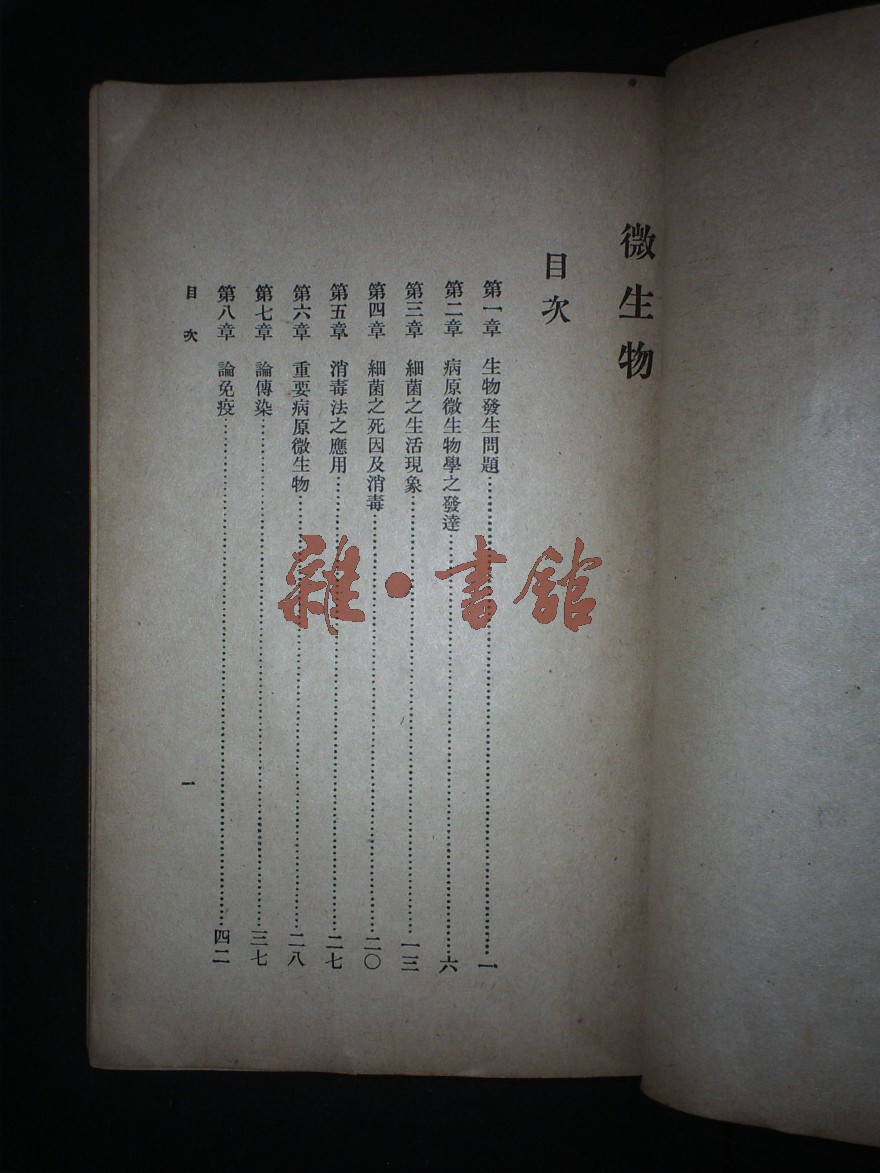 微生物
目次
第一章 生物發生問題……一
第二章 病原微生物學之發達……六
第三章 細菌之生活現象……一三
第四章 細菌之死因及消毒……二〇
第五章 消毒法之應用……二七
第六章 重要病原微生物……二八
第七章 論傳染……三七
第八章 論免疫……四二
目次
一
雜·書館